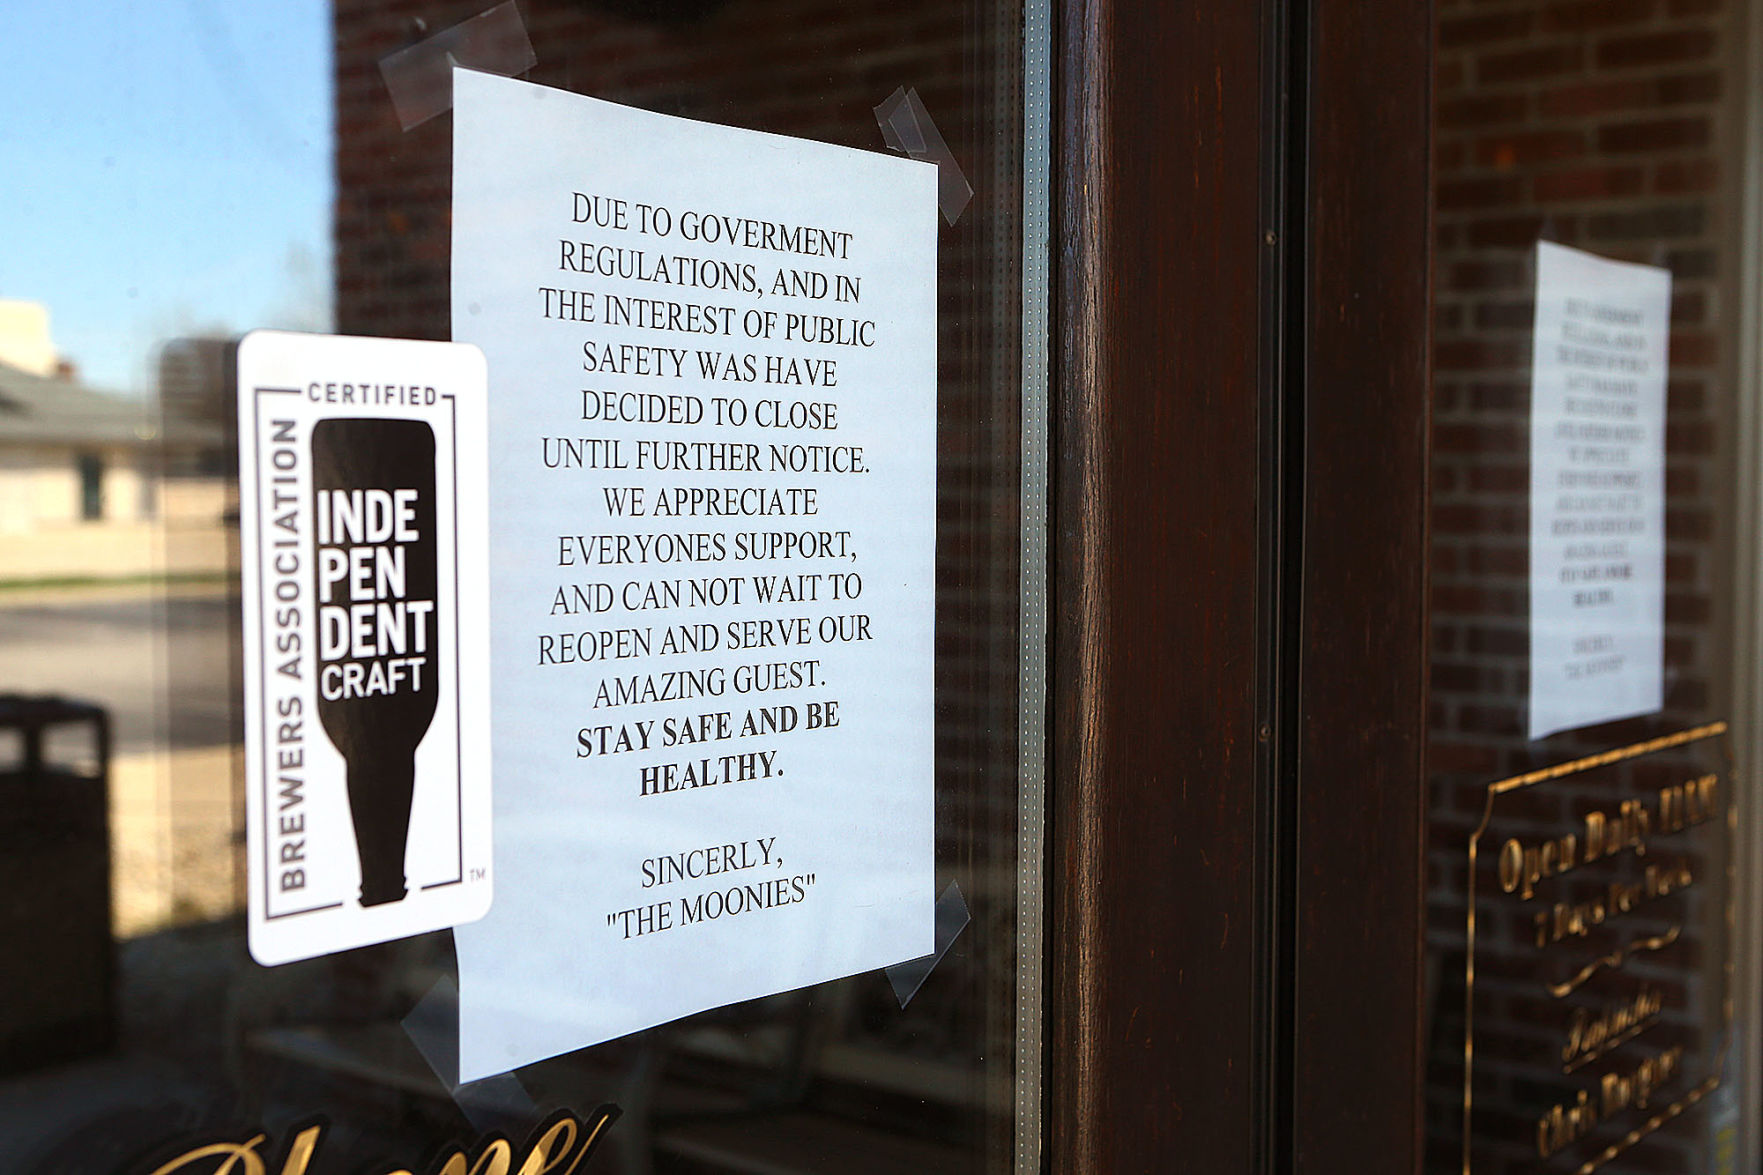 CERTIFIED
BREWERS ASSOCIATION
INDE
PEN
DENT
CRAFT
TM
DUE TO GOVERMENT
REGULATIONS, AND IN
THE INTEREST OF PUBLIC
SAFETY WAS HAVE
DECIDED TO CLOSE
UNTIL FURTHER NOTICE.
WE APPRECIATE
EVERYONES SUPPORT,
AND CAN NOT WAIT TO
REOPEN AND SERVE OUR
AMAZING GUEST.
STAY SAFE AND BE
HEALTHY.
SINCERLY,
"THE MOONIES"
Phone
Open Daily 11AM
7 Days Per Week